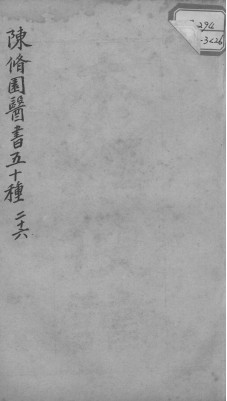 陳脩園醫書五十種 二十六
294
-3<26